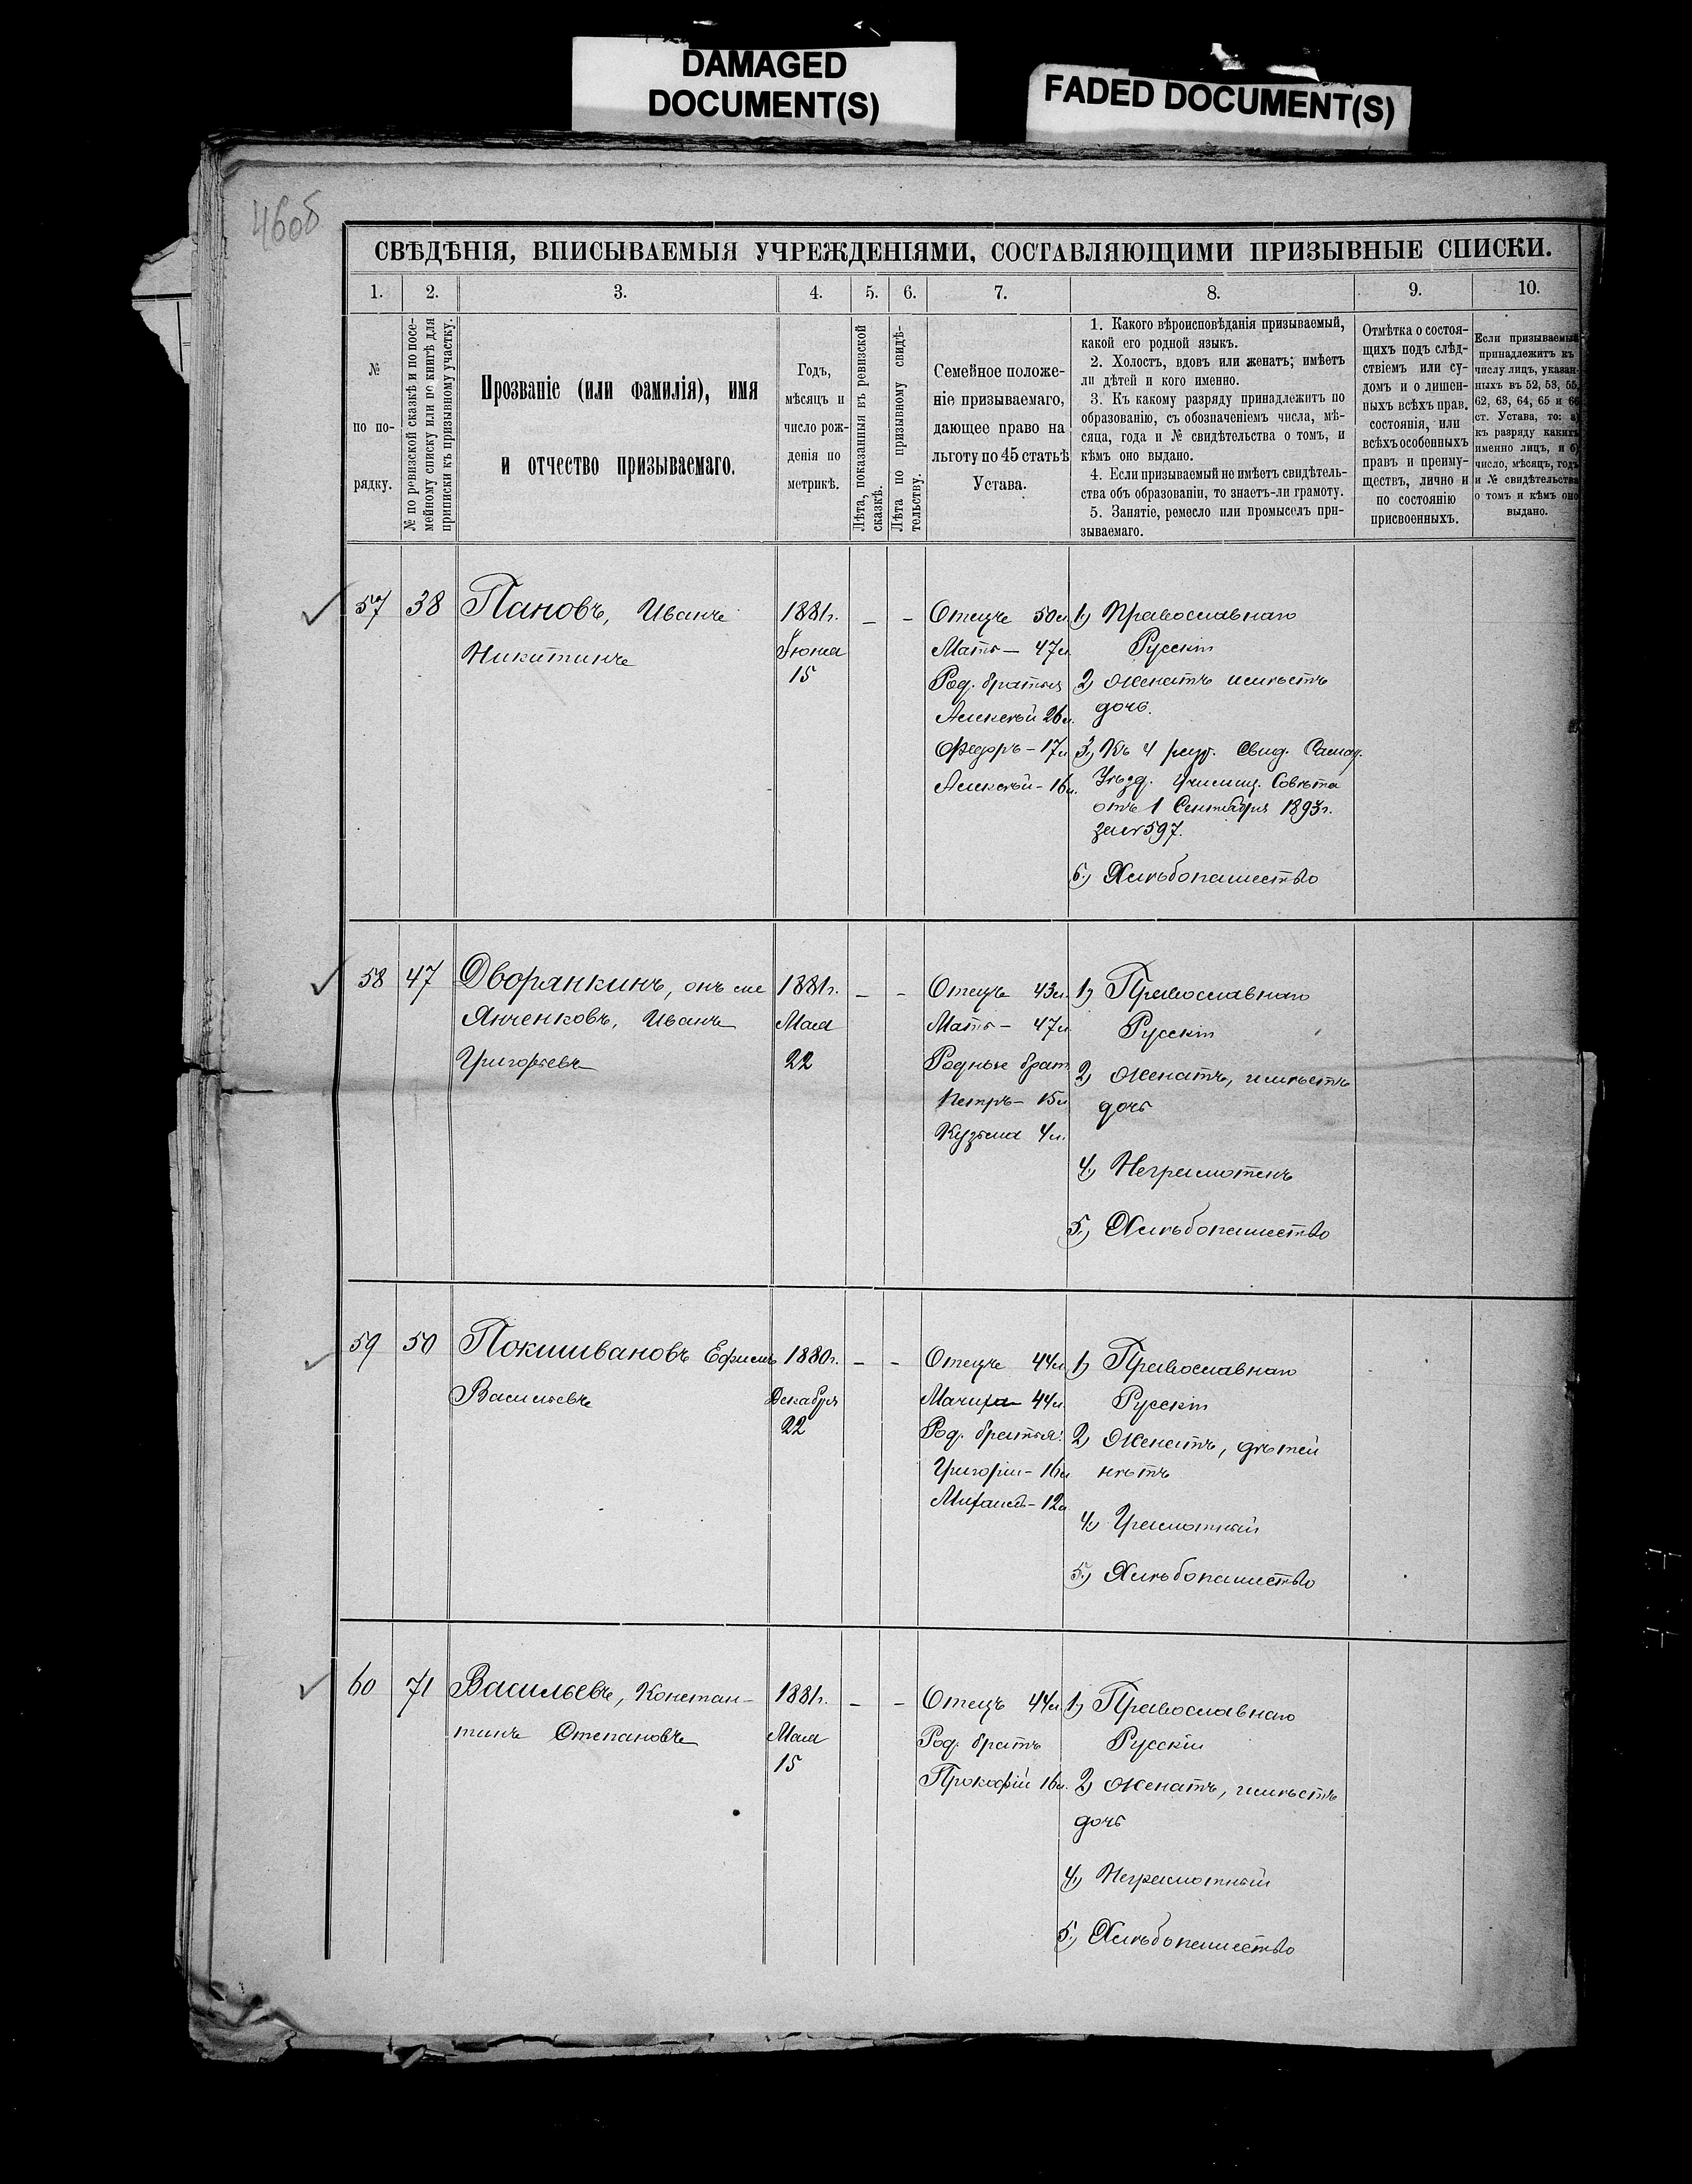 DAMAGED
DOCUMENT(S)
FADED DOCUMENT(S)
46об
СВѢДѢНІЯ, ВПИСЫВАЕМЫЯ УЧРЕЖДЕНІЯМИ, СОСТАВЛЯЮЩИМИ ПРИЗЫВНЫЕ СПИСКИ.
1. 2. 3. 4. 5. 6. 7. 8. 9. 10.
№
по по-
рядку.
№ по ревизской сказкѣ и по посе-
мейному списку или по книгѣ для
приписки къ призывному участку.
Прозваніе (или фамилія), имя
и отчество призываемаго.
Годъ,
мѣсяцъ и
число рож-
денія по
метрикѣ.
Лѣта, показанныя въ ревизской
сказкѣ.
Лѣта по призывному свидѣ-
тельству.
Семейное положе-
ніе призываемаго,
дающее право на
льготу по 45 статьѣ
Устава.
1. Какого вѣроисповѣданія призываемый,
какой его родной языкъ.
2. Холостъ, вдовъ или женатъ; имѣетъ
ли дѣтей и кого именно.
3. Къ какому разряду принадлежитъ по
образованію, съ обозначеніемъ числа, мѣ-
сяца, года и № свидѣтельства о томъ, и
кѣмъ оно выдано.
4. Если призываемый не имѣетъ свидѣтель-
ства объ образованіи, то знаетъ-ли грамоту.
5. Занятіе, ремесло или промыселъ при-
зываемаго.
Отмѣтка о состоя-
щихъ подъ слѣд-
ствіемъ или су-
домъ и о лишен-
ныхъ всѣхъ прав.
состоянія, или
всѣхъ особенныхъ
правъ и преиму-
ществъ, лично и
по состоянію
присвоенныхъ.
Если призываемый
принадлежитъ къ
числу лицъ, указан-
ныхъ въ 52, 53, 55,
62, 63, 64, 65 и 66
ст. Устава, то: а)
къ разряду какихъ
именно лицъ, и б)
число, мѣсяцъ, годъ
и № свидѣтельства
о томъ и кѣмъ оно
выдано.
57 38 Пановъ, Иванъ
Никитинъ
1881г.
Іюня
15
– –
Отецъ 50л.
Мать – 47л.
Род. братья
Алексѣй 26л.
Ѳедоръ – 17л.
Алексѣй – 16л.
1) Православнаго
Русскій
2) Женатъ имѣетъ
дочь.
3) Къ 4 разр. Свид.
Уѣзд. Училищ. Совѣта
отъ 1 Сентября 1893г.
за № 597.
5.) Хлѣбопашество
58 47 Дворянкинъ, онъ же
Янченковъ, Иванъ
Григорьевъ
1881г.
Мая
22
– –
Отецъ 43л.
Мать – 47л.
Родные брат.
Петръ – 15л.
Кузьма 4л.
1) Православнаго
Русскій
2) Женатъ, имѣетъ
дочь
4) Неграмотенъ
5.) Хлѣбопашество
59 50 Покшивановъ Ефимъ
Васильевъ
1880г.
Декабря
22
– –
Отецъ 44л.
Мачиха – 44л.
Род. братья:
Григорій – 16л.
Михаилъ – 12л.
1) Православнаго
Русскій
2) Женатъ, дѣтей
нѣтъ
4) Грамотный
5.) Хлѣбопашество
60 71 Васильевъ, Констан-
тинъ Степановъ
1881г.
Мая
15
– –
Отецъ 44л.
Род. братъ
Прокофій 16л.
1) Православнаго
Русскій
2) Женатъ, имѣетъ
дочь
4) Неграмотный
5.) Хлѣбопашество